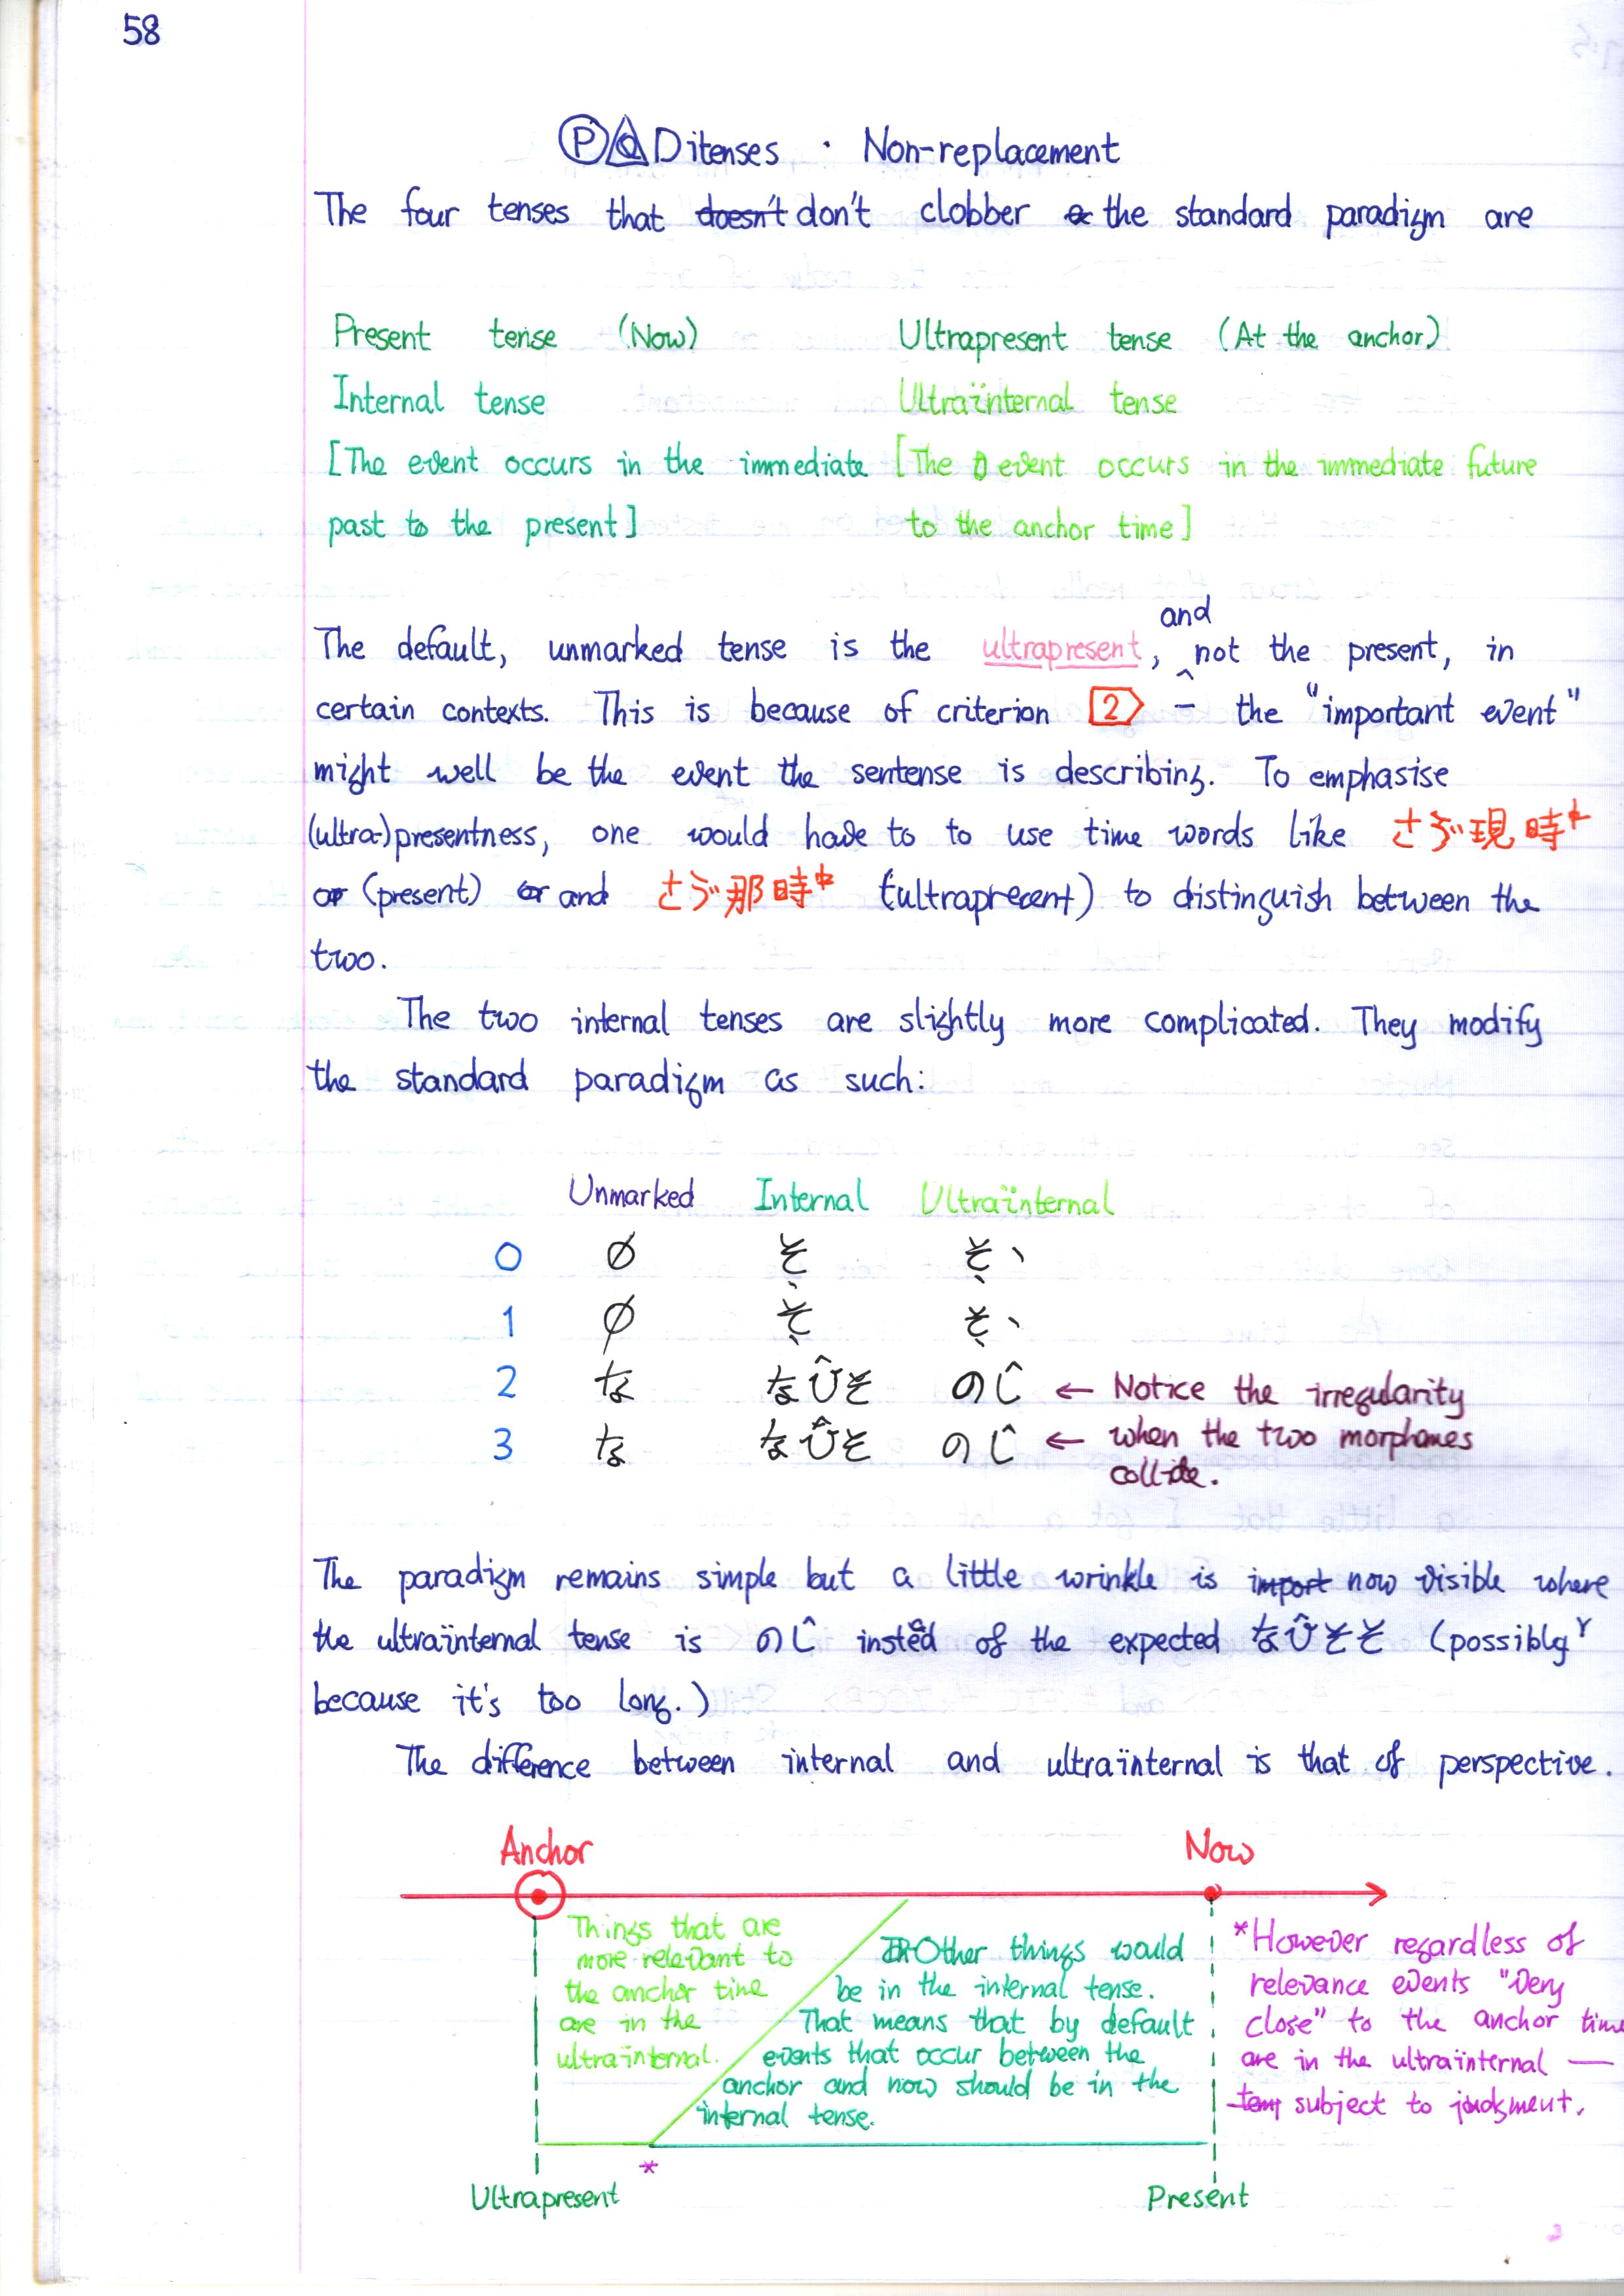 58
Ⓟ Ditenses · Non-replacement
The four tenses that doesn't don't clobber the standard paradigm are
Present tense (Now)
Ultrapresent tense (At the anchor)
Internal tense
Ultraïnternal tense
[The event occurs in the immediate
past to the present]
[The event occurs in the immediate future
to the anchor time]
The default, unmarked tense is the ultrapresent, and not the present, in
certain contexts. This is because of criterion 2 – the "important event"
might well be the event the sentense is describing. To emphasise
(ultra-)presentness, one would have to to use time words like 現時
or (present) or and 那時 (ultraprecent) to distinguish between the
two.
The two internal tenses are slightly more complicated. They modify
the standard paradigm as such:
Unmarked Internal Ultraïnternal
0 ∅ そ そ、
1 ∅ そ そ、
2 な なひ̂そ のじ ← Notice the irregularity
3 な なひ̂そ のじ ← when the two morphemes
collide.
The paradigm remains simple but a little wrinkle is import now visible where
the ultraïnternal tense is のじ insted of the expected なひ̂そそ (possibly
because it's too long.)
The difference between internal and ultraïnternal is that of perspective.
Anchor
Now
Things that are
more relevant to
the anchor time
are in the
ultraïnternal.
Other things would
be in the internal tense.
That means that by default
events that occur between the
anchor and now should be in the
internal tense.
*However regardless of
relevance events "very
close" to the anchor time
are in the ultraïnternal —
subject to judgment.
*
Ultrapresent
Present